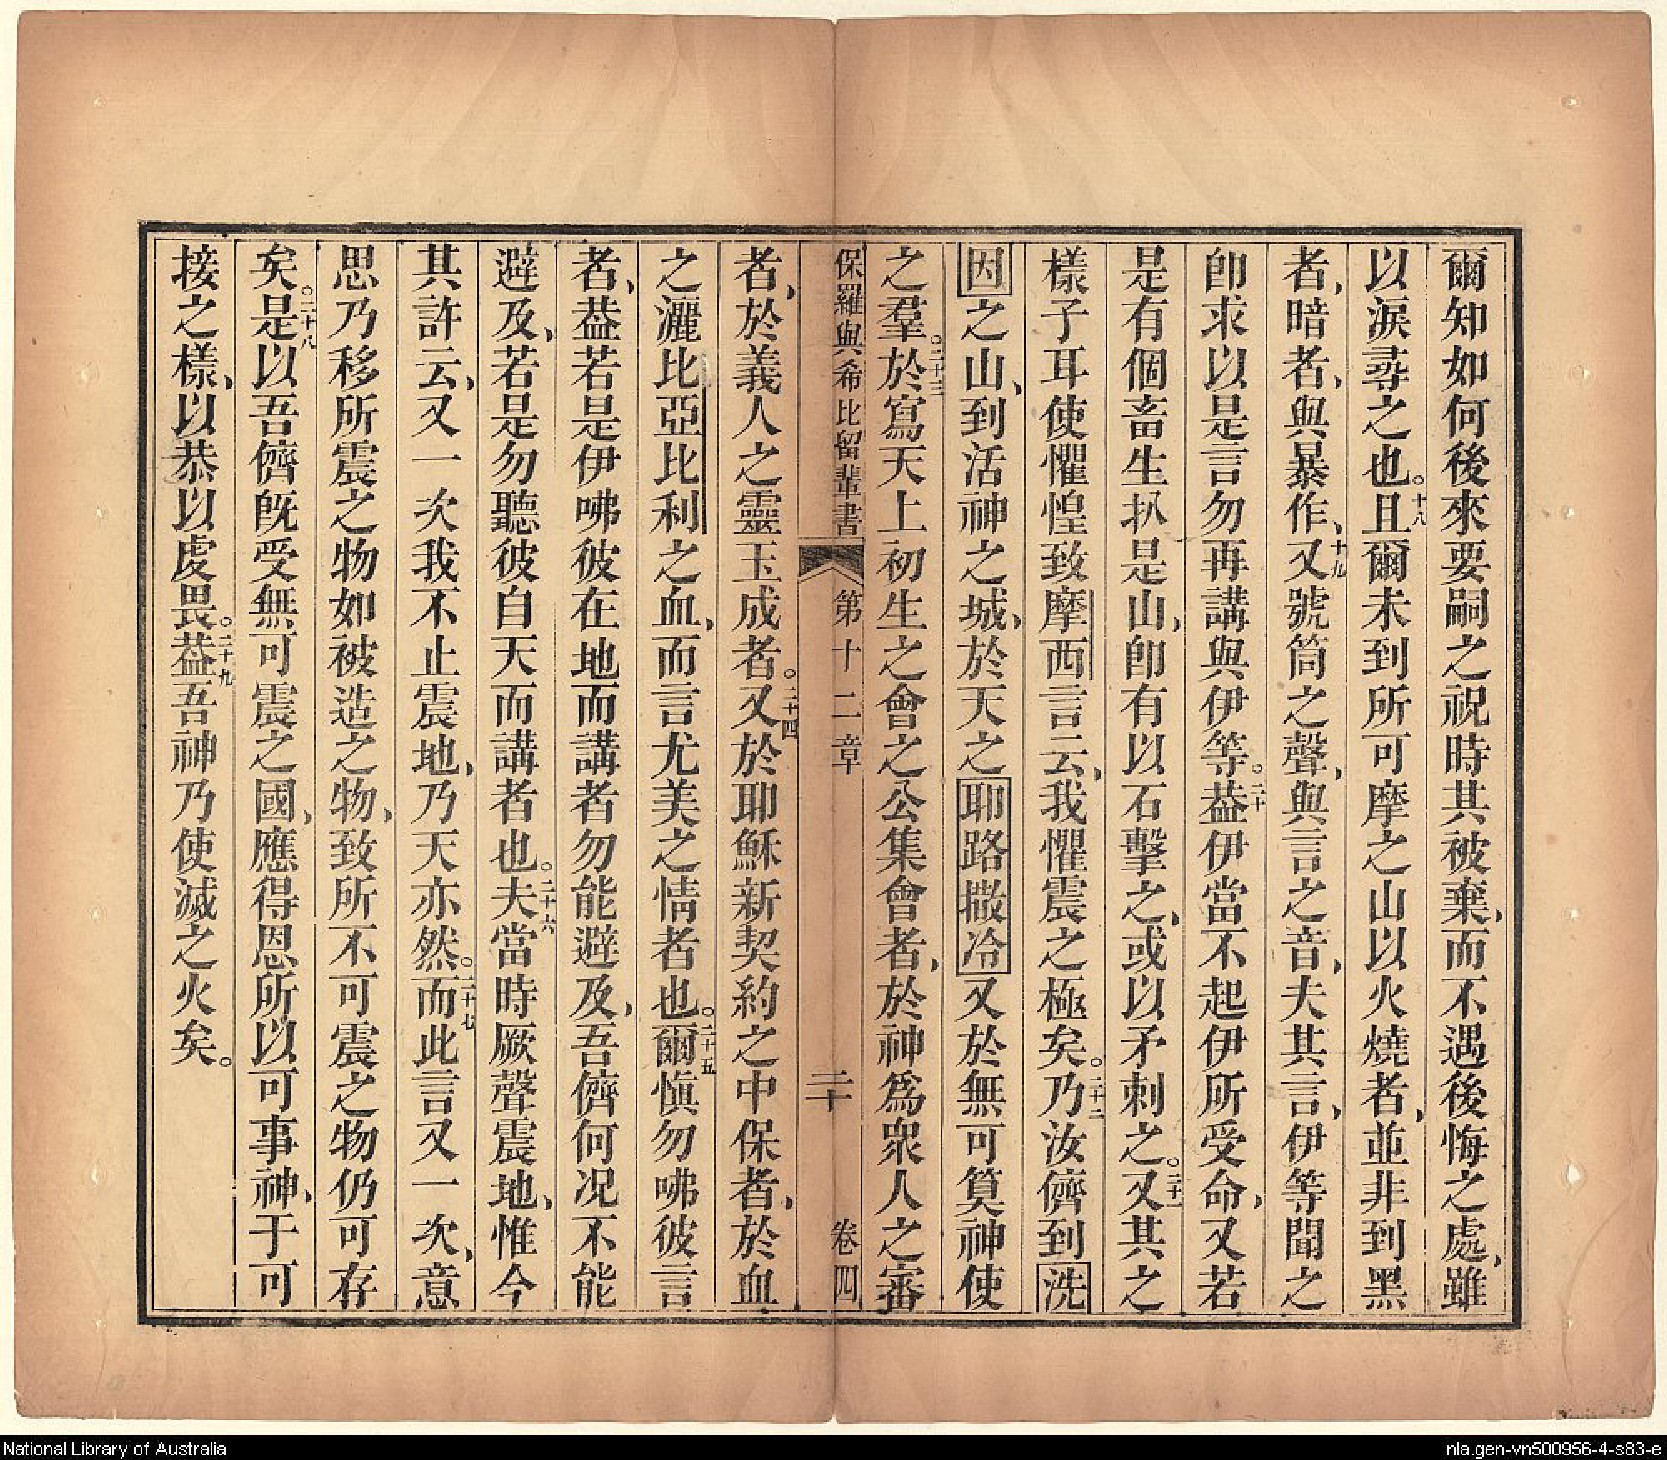 爾知如何後來要嗣之祝時其被棄、而不遇後悔之處、雖
以淚尋之也。十八且爾未到所可摩之山以火燒者、並非到黑
者、暗者、與暴作、十九又號筒之聲、與言之音、夫其言、伊等聞之
卽求以是言勿再講與伊等。二十葢伊當不起伊所受命、又若
是有個畜生扒是山、卽有以石擊之、或以矛刺之。二十一又其之
樣子耳使懼惶致摩西言云、我懼震之極矣。二十二乃汝儕到洗
因之山、到活神之城、於天之耶路撒冷又於無可筭神使
之羣。二十三於寫天上初生之會之公集會者、於神爲衆人之審
保羅與希比留輩書 第十二章 二十 卷四
者、於義人之靈玉成者。二十四又於耶穌新契約之中保者、於血
之灑比亞比利之血、而言尤美之情者也。二十五爾愼勿咈彼言
者、葢若是伊咈彼在地而講者勿能避及、吾儕何况不能
避及、若是勿聽彼自天而講者也。二十六夫當時厥聲震地、惟今
其許云、又一次我不止震地、乃天亦然。二十七而此言又一次、意
思乃移所震之物如被造之物、致所不可震之物仍可存
矣。二十八是以吾儕旣受無可震之國、應得恩所以可事神、于可
接之樣、以恭以虔畏。二十九葢吾神乃使滅之火矣。
National Library of Australia
nla.gen-vn500956-4-s83-e